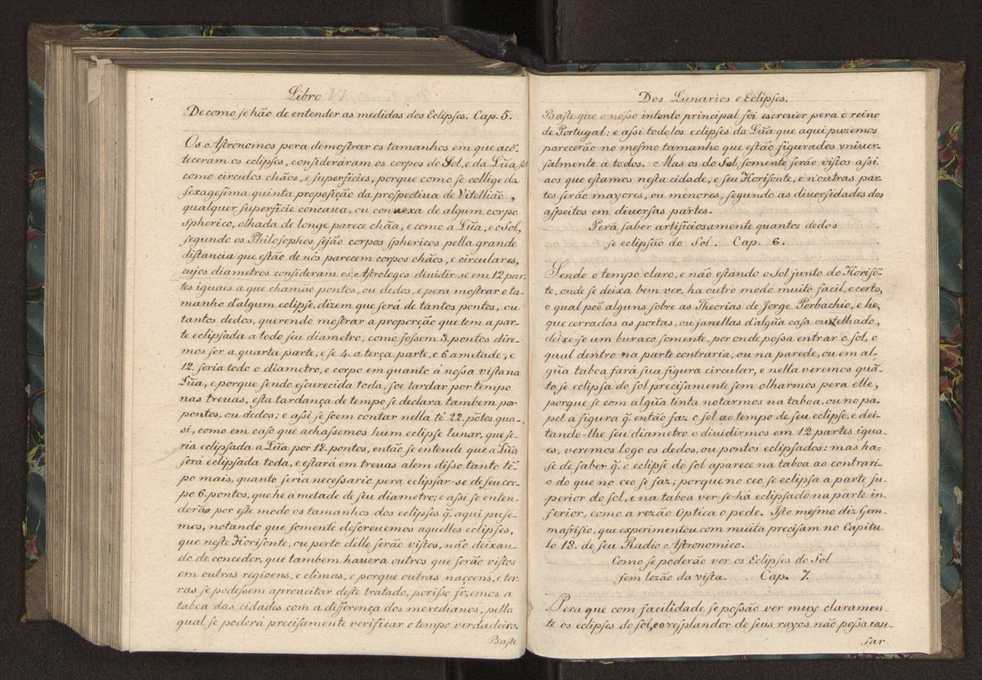 Libro
De como se hão de entender as medidas dos Eclipses. Cap. 5.
Os Astronomos pera demostrar os tamanhos em que acõ-
teceram os eclipses, consideráram os corpos do Sol, e da Lũa, so
como circulos chãos, e superficies, porque como se collige da
sexagesima quinta proposição da prospectiua de Vitellião,
qualquer superficie concaua, ou conuexa de algum corpo
spherico, olhada de longe parece chãa, e como a Lũa, e o Sol,
segundo os Philosophos sejão corpos sphericos pella grande
distancia que estão de nós parecem corpos chãos, e circulares,
cujos diametros consideram os Astrologos diuidir-se em 12 par-
tes iguais a que chamão pontos, ou dedos, e pera mostrar o ta-
manho d'algum eclipse, dizem que será de tantos pontos, ou
tantos dedos, querendo mostrar a proporção que tem a par-
te eclipsada a todo seu diametro, como sossem 3. pontos dire-
mos ser a quarta parte, e se 4. a terça parte, e 6. ametade, e
12. seria todo o diametro, e corpo em quanto á nossa vista na
Lũa, e porque sendo escurecida toda, soe tardar por tempo
nas treuas, esta tardança de tempo se declara tambem por
pontos, ou dedos: e assi se soem contar nella té 22. põtos qua-
si, como em caso que achassemos hum eclipse lunar, que se-
ria eclipsada a Lũa por 18. pontos, então se entende que a Lũa
será eclipsada toda, e estará em treuas alem disso tanto tẽ-
po mais, quanto seria necessario pera eclipsar-se de seu cor-
po 6. pontos, que he a metade de seu diametro; e assi se enten-
derão por este modo os tamanhos dos eclipses q̃. aqui puse-
mos, notando que somente descreuemos aquelles eclipses,
que neste Horisonte, ou perto delle serão vistos, não deixan-
do de conceder, que tambem hauera outros que serão vistos
em outras regioens, e climas, e porque outras naçoens, e ter-
ras se podessem aproueitar deste tratado, porisso fizemos a
taboa das cidades com a differença dos meredianos, pella
qual se poderá precisamente verificar o tempo verdadeiro.
Baste
Dos Lunarios e Eclipses.
Baste que o nosso intento principal foi escreuer pera o reino
de Portugal: e assi todolos eclipses da Lũa que aqui puzemos
parecerão no mesmo tamanho que estão figurados vniuer-
salmente á todos. Mas os do Sol, somente serão vistos assi
aos que estamos nesta cidade, e seu Horisonte, e n'outras par-
tes serão mayores, ou menores, segundo as diuersidades dos
aspeitos em diuersas partes.
Perá saber artificiosamente quantos dedos
se eclipsão do Sol. Cap. 6.
Sendo o tempo claro, e não estando o Sol junto do Horisõ-
te, onde se deixa bem ver, ha outro modo muito facil, e certo,
o qual poẽ alguns sobre as Theorias de Jorge Porbachio, e he,
que cerradas as portas, ou janellas d'algũa casa ou telhado,
deixe-se um buraco somente, por onde possa entrar o sol, o
qual dentro na parte contraria, ou na parede, ou em al-
gũa taboa fará sua figura circular, e nella veremos quã-
to se eclipsa do sol precisamente sem olharmos pera elle,
porque se com algũa tinta notarmos na taboa, ou no pa-
pel a figura q̃. então faz o sol ao tempo de seu eclipse, e dei-
tando-lhe seu diametro o diuidirmos em 12 partes igua-
es, veremos logo os dedos, ou pontos eclipsados: mas ha-
se de saber q̃. o eclipse do sol aparece na taboa ao contrari-
o do que no ceo se faz; porque no ceo se eclipsa a parte su-
perior do sol, e na taboa ver-se-há eclipsado na parte in-
ferior, como a rezão Optica o pede. Isto mesmo diz Gem-
mafrisio, que experimentou com muita precisam no Capitu-
lo 18. de seu Radio Astronomico.
Como se poderão ver os Eclipses do Sol
sem lezão da vista. Cap. 7.
Pera que com facilidade se possão ver muy claramen-
te os eclipses do sol, e o resplandor de seus rayos não possa cau-
sar